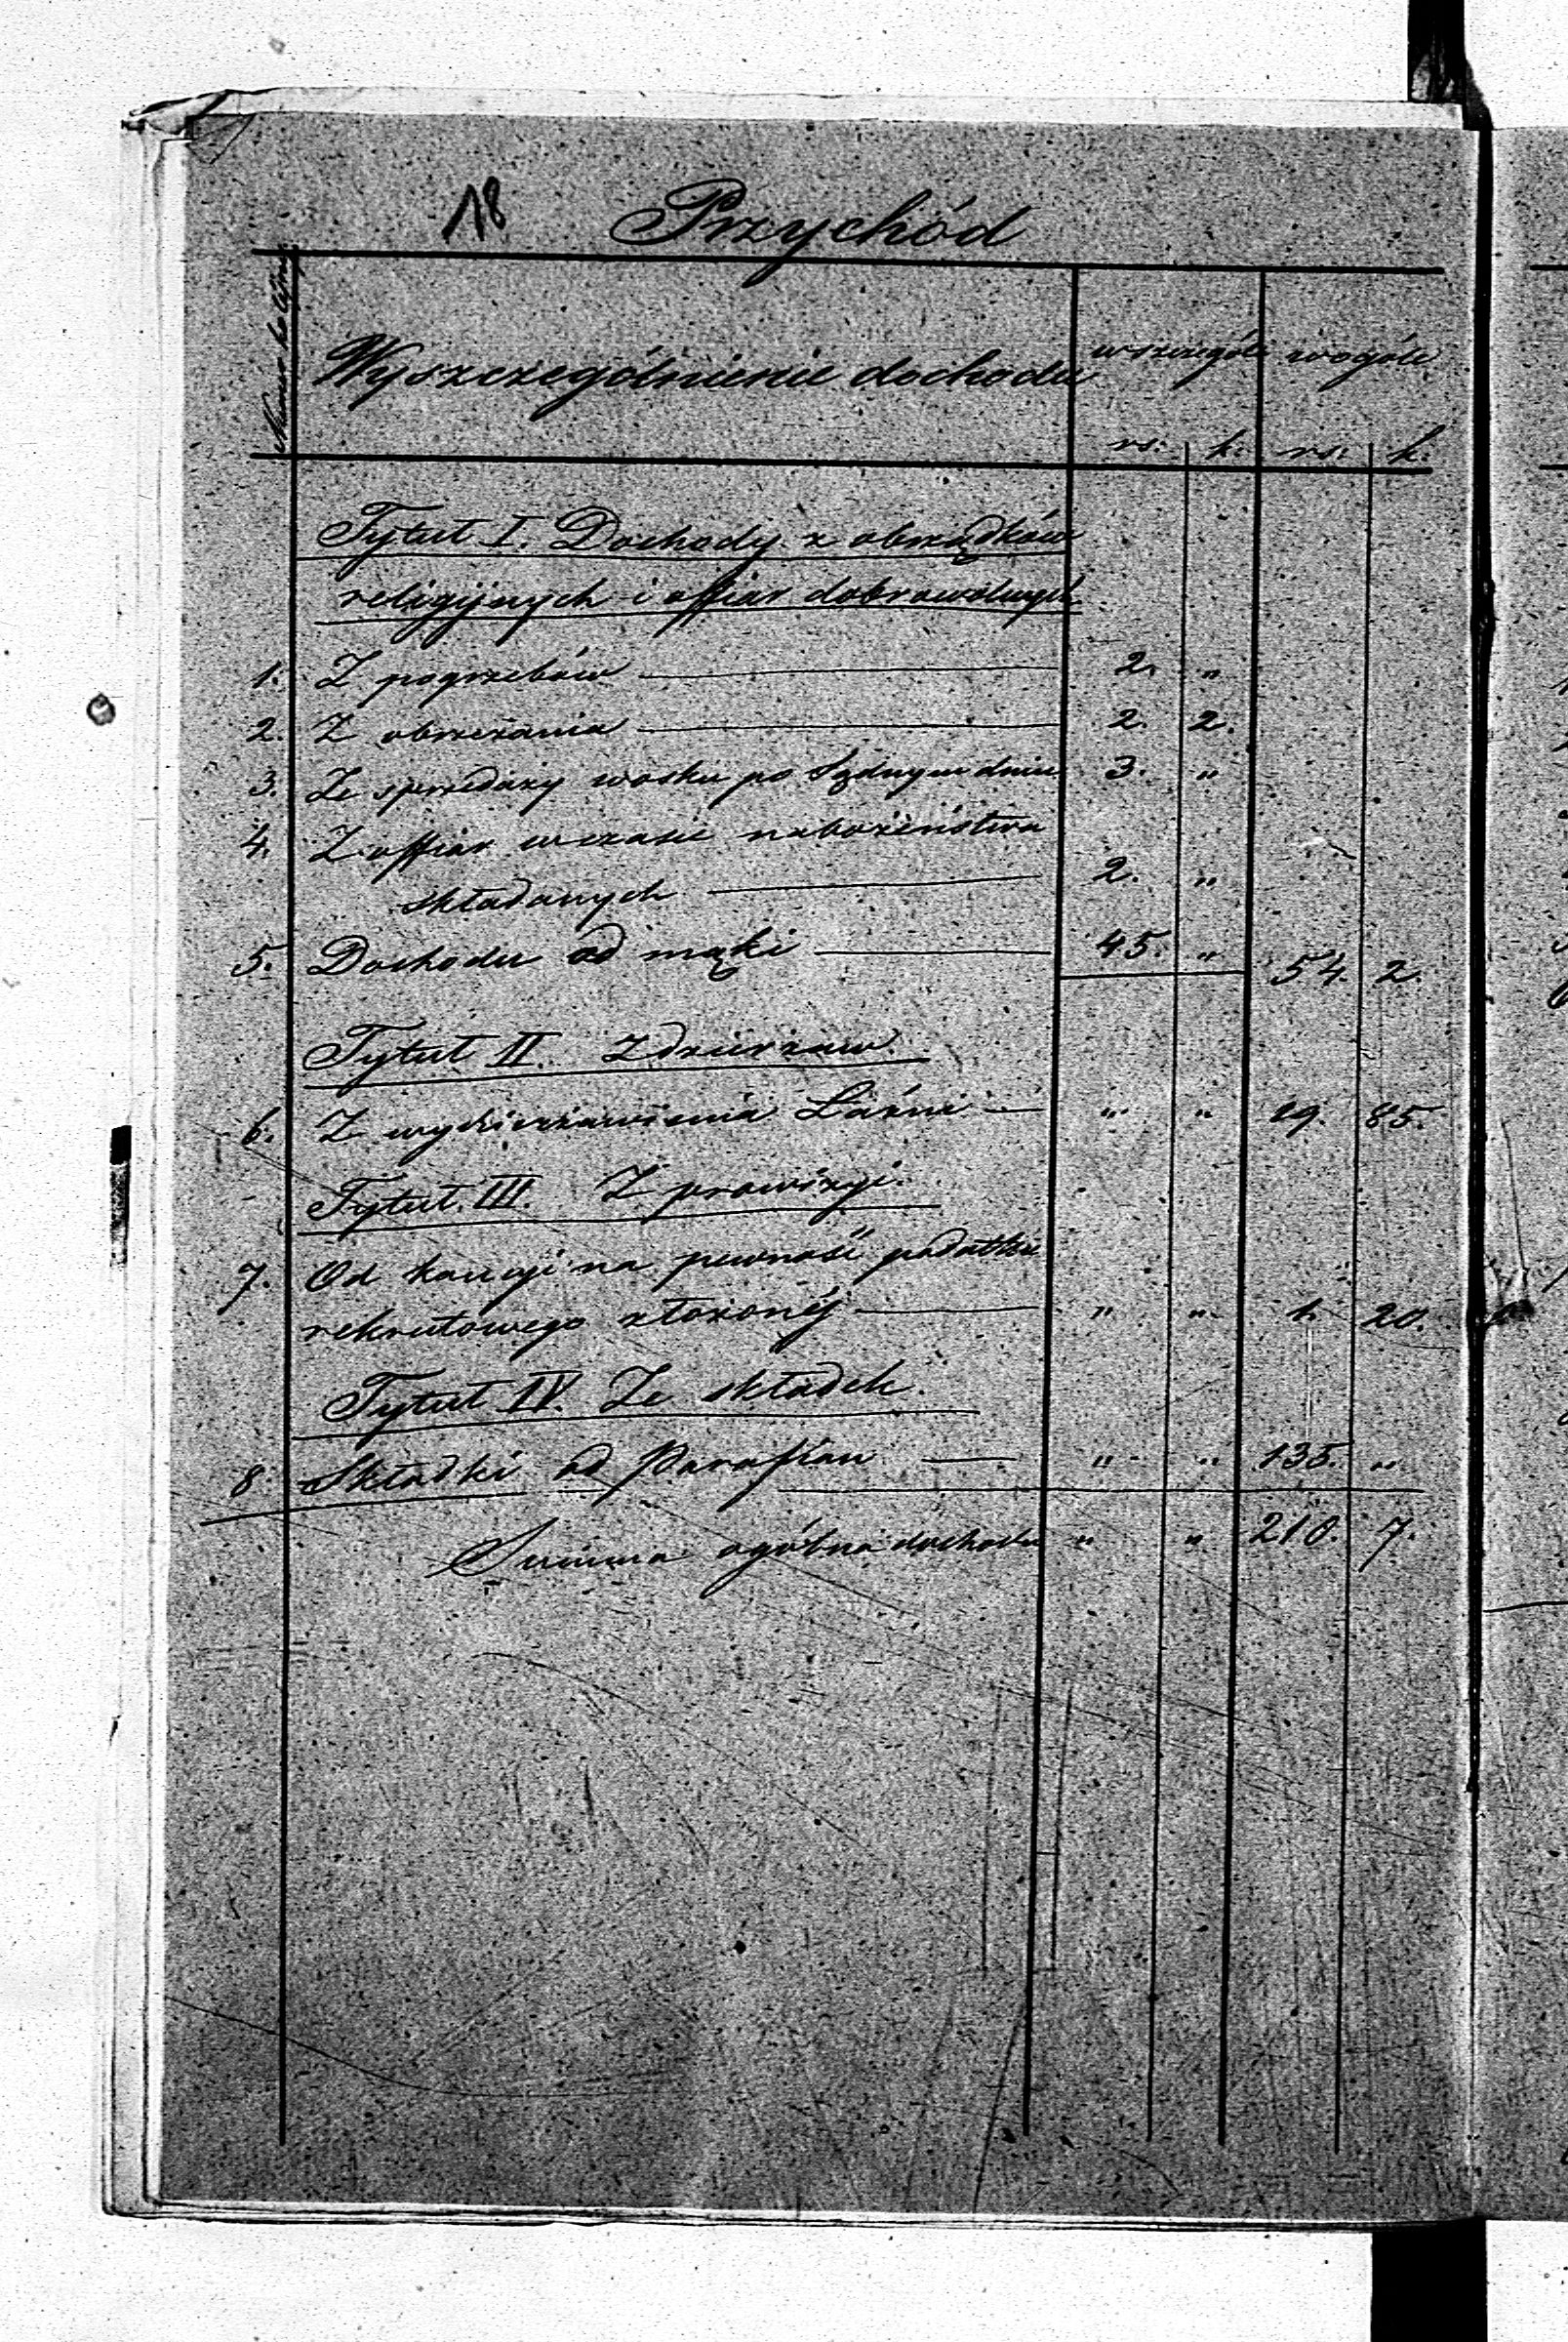 18 Przychód
Wyszczególnienie dochodu wszczegół. wogóle
rs: k: rs: k:
Tytuł I. Dochody z obrządków
religijnych i offiar dobrowolnych
1. Z pogrzebów 2. "
2. Z obrzezania 2. 2.
3. Ze sprzedaży wosku po Sądnym dniu 3. "
4. Z offiar w czasie nabożeństwa
składanych 2. "
5. Dochodu od mąki 45. " 54. 2.
Tytuł II. Z dzierżaw.
6. Z wydzierżawienia Łaźni " " 19. 85.
Tytuł III. Z prowizyi.
7. Od kaucyi na pewność podatku
rekrutowego złożonéj " " 1. 20.
Tytuł IV. Ze składek.
8. Składki od Parafian " " 135. "
Summa ogólna dochodu " " 210. 7.